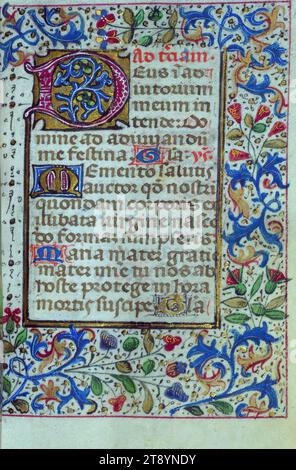 Ad t̄ciam
Deus ī ad
iutorium
meum in
tende Do
mine ad adiuuandū
me festina Gla p̄s
Memento salutis
auctor qđ nostri
quondam corporis
illibata virgine nascē
do formam sumpseris
Maria mater gratie
mater mie tu nos ab
hoste protege in hora
mortis suscipe Gla
alamy - 2T8YNDY